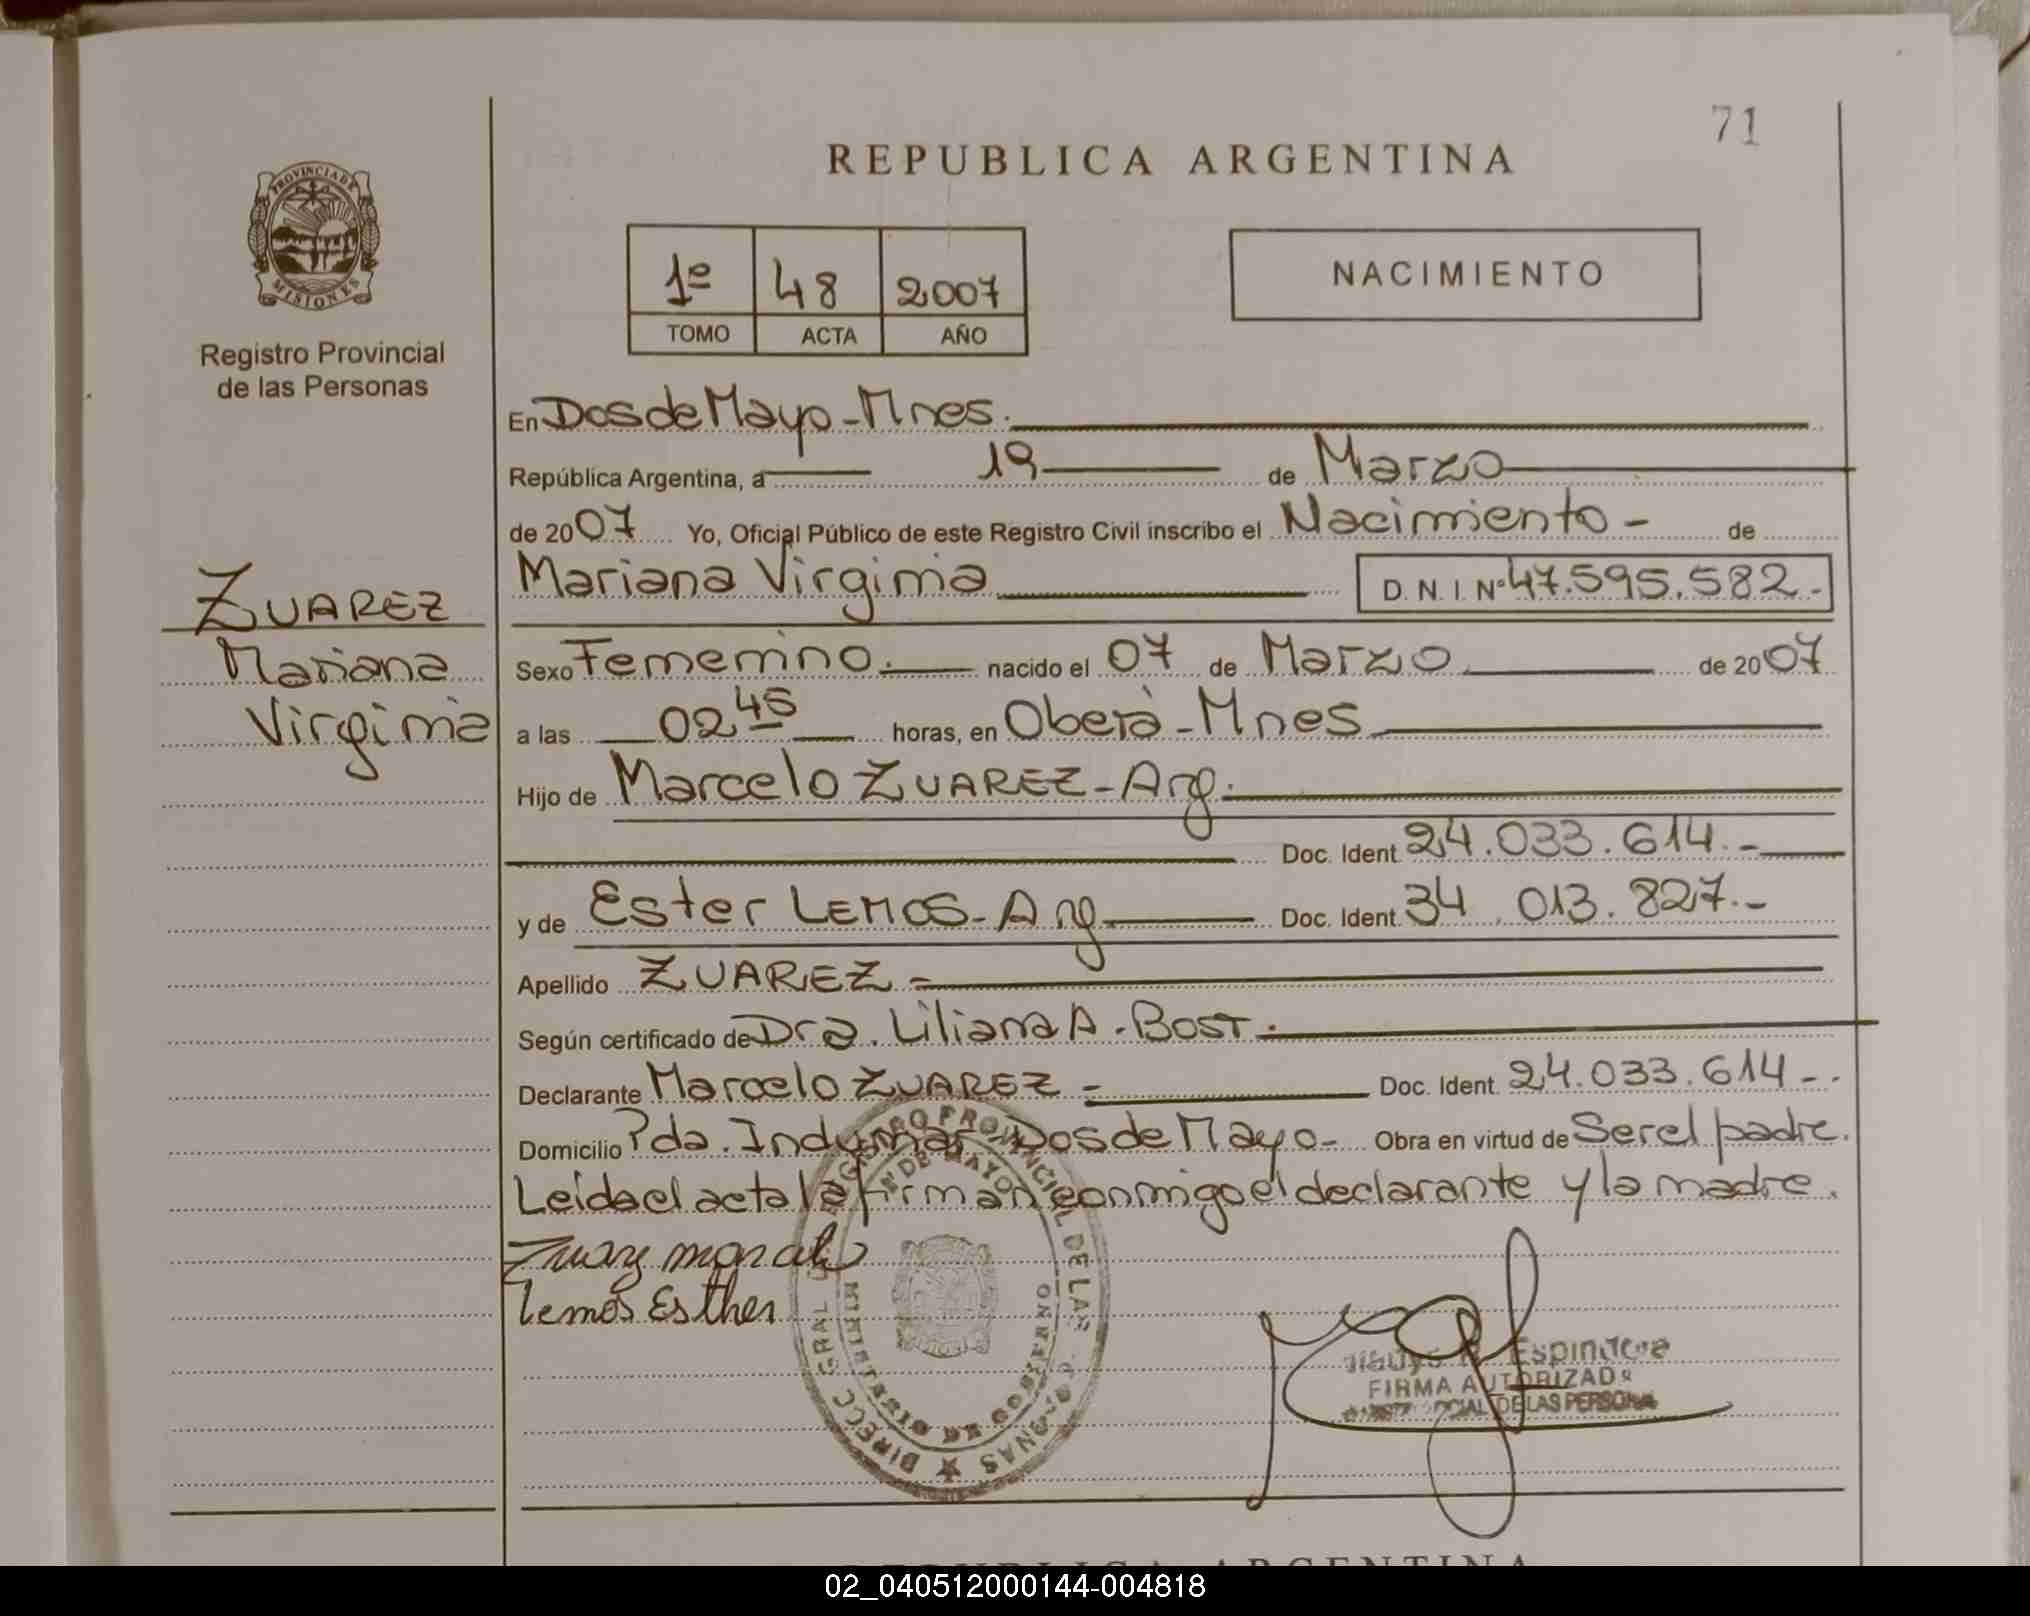 71
REPUBLICA ARGENTINA
PROVINCIA DE
MISIONES
Registro Provincial
de las Personas
1º 48 2007
TOMO ACTA AÑO
NACIMIENTO
En Dos de Mayo - Mnes.
República Argentina, a 19 de Marzo
de 2007 Yo, Oficial Público de este Registro Civil inscribo el Nacimiento - de
Mariana Virginia D.N.I. Nº 47.595.582.-
ZUAREZ
Mariana
Virginia
Sexo Femenino. nacido el 07 de Marzo de 2007
a las 02 45 horas, en Oberà - Mnes
Hijo de Marcelo ZUAREZ - Arg.
Doc. Ident. 24.033.614.-
y de Ester LEMOS - Arg Doc. Ident. 34.013.827.-
Apellido ZUAREZ -
Según certificado de Dra. Liliana A. BOST.
Declarante Marcelo ZUAREZ - Doc. Ident. 24.033.614 - .
Domicilio Pda. Indumar Dos de Mayo - Obra en virtud de Ser el padre.
Leida el acta la firman conmigo el declarante y la madre.
Lemos Esther
DIRECC GRAL REGISTRO PROVINCIAL DE LAS PERSONAS
MINISTERIO DE GOBIERNO
DOS DE MAYO
Espindola
FIRMA AUTORIZADA
DE LAS PERSONAS
REPUBLICA ARGENTINA
02_040512000144-004818